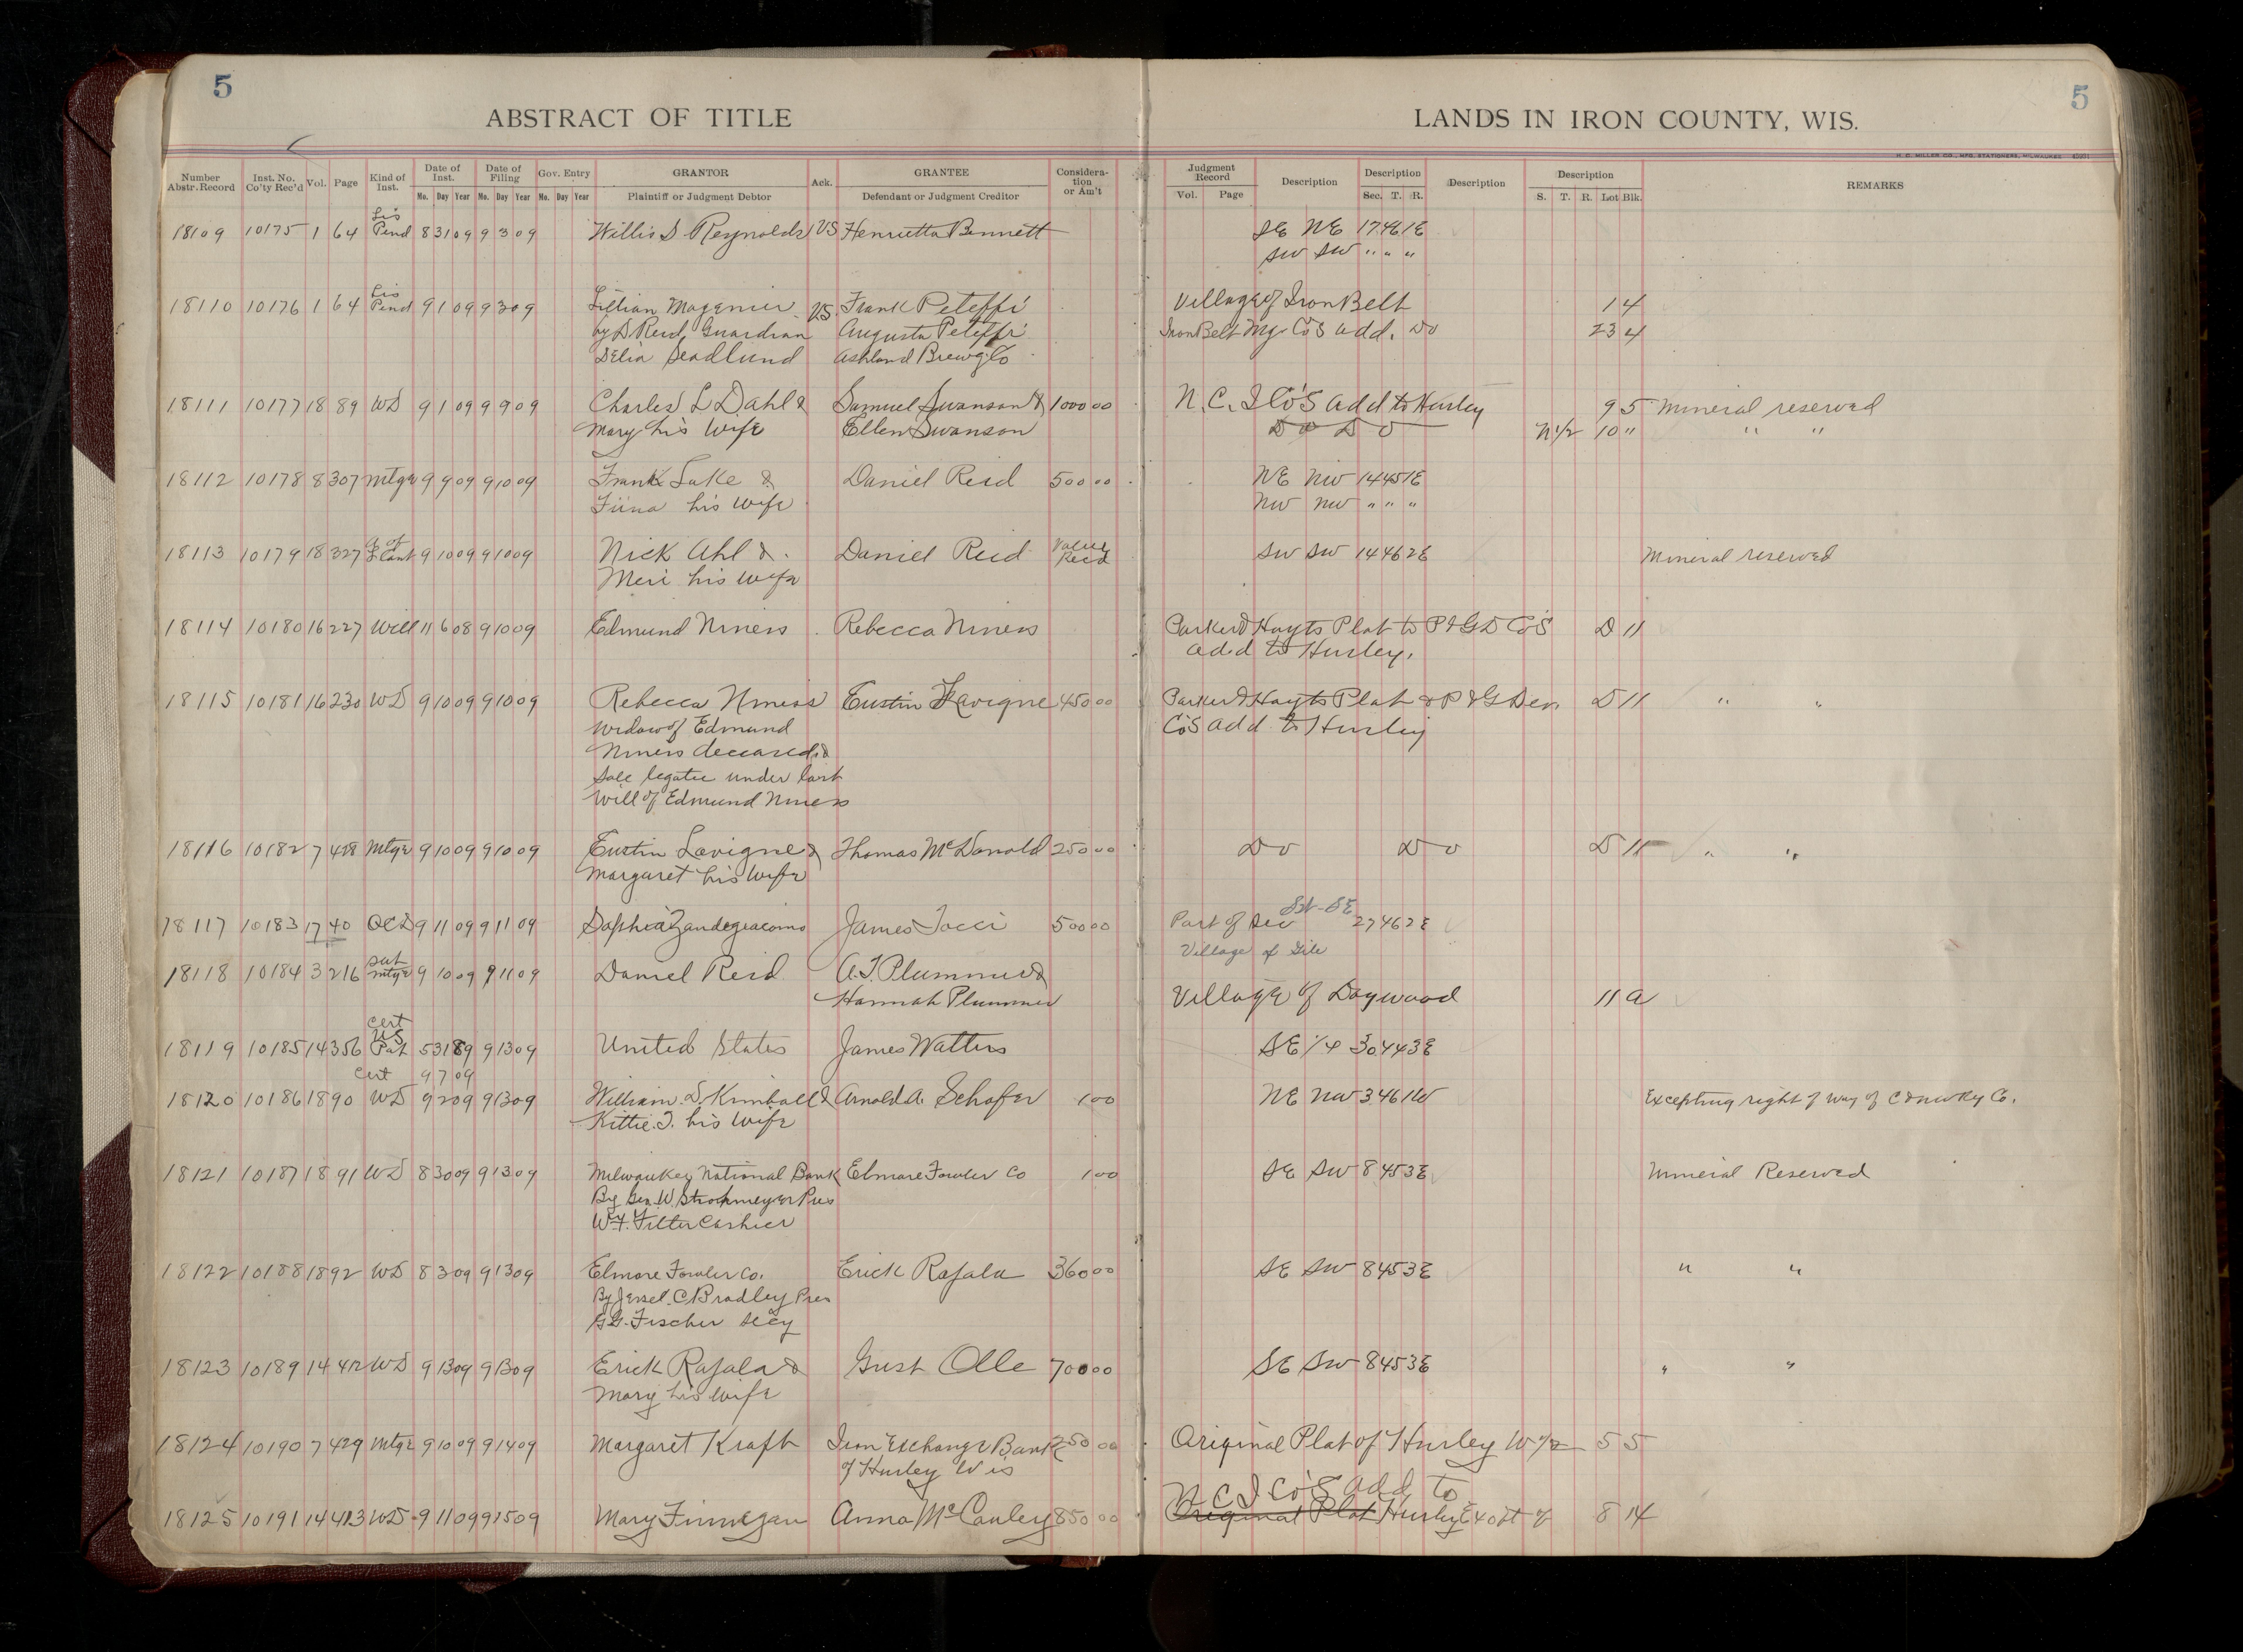 5
5
ABSTRACT OF TITLE
LANDS IN IRON COUNTY, WIS.
H. C. MILLER CO., MFG. STATIONERS, MILWAUKEE
Number Abstr. Record Inst. No. Co'ty Rec'd Vol. Page Kind of Inst. Date of Inst. Mo. Day Year Date of Filing Mo. Day Year Gov. Entry Mo. Day Year GRANTOR Plaintiff or Judgment Debtor Ack. GRANTEE Defendant or Judgment Creditor Considera-tion or Am't Judgment Record Vol. Page Description Description Sec. T. R. Description Description S. T. R. Lot Blk. REMARKS
18109 10175 1 64 Lis Pend 8 31 09 9 3 09 Willis S. Reynolds VS Henrietta Bennett SE NE 17 46 1E
SW SW " " "
18110 10176 1 64 Lis Pend 9 1 09 9 3 09 Lillian Magenier VS Frank Peteffi Village of Iron Belt 1 4
by D Reid, Guardian Augusta Peteffi Iron Belt Mg Co's add. Do 23 4
Delia Seadlund Ashland Brewg. Co
18111 10177 18 89 WD 9 1 09 9 9 09 Charles L Dahl & Samuel Swanson & 1000 00 N. C. I Co's add to Hurley 9 5 Mineral reserved
Mary his wife Ellen Swanson Do Do N 1/2 10 " " "
18112 10178 8 307 Mtge 9 9 09 9 10 09 Frank Lake & Daniel Reid 500 00 NE NW 14 45 1E
Fiina his wife NW NW " " "
18113 10179 18 327 A of L Cont 9 10 09 9 10 09 Nick Ahl & Daniel Reid Value Recd SW SW 14 46 2E Mineral reserved
Meri his wife
18114 10180 16 227 Will 11 6 08 9 10 09 Edmund Niness Rebecca Niness Parker & Hayts Plat to P & G D Co's D 11
add to Hurley.
18115 10181 16 230 WD 9 10 09 9 10 09 Rebecca Niness Eustin Lavigne 450 00 Parker & Hayts Plat & P & G Dev. D 11 " "
Widow of Edmund Co's add to Hurley
Niness deceased &
Sole legatee under last
Will of Edmund Niness
18116 10182 7 428 Mtge 9 10 09 9 10 09 Eustin Lavigne & Thomas McDonald 250 00 Do Do D 11 " "
Margaret his wife
18117 10183 17 40 QCD 9 11 09 9 11 09 Sophia Zandegiacomo James Tocci 500 00 Part of Sec 27 46 2E
Village of Gile
18118 10184 3 216 Sat Mtge 9 10 09 9 11 09 Daniel Reid A. T. Plummer &
Hannah Plummer Village of Dogwood 11 a
18119 10185 14 356 Cert US Pat 5 31 89 9 13 09 United States James Watters SE 1/4 30 44 3E
Cert 9 7 09
18120 10186 18 90 WD 9 2 09 9 13 09 William D. Kimball & Arnold A. Schafer 1 00 NE NW 3 46 1W Excepting right of way of C & NW Ry Co.
Kittie. T. his wife
18121 10187 18 91 WD 8 30 09 9 13 09 Milwaukee National Bank Elmore Fowler Co 1 00 SE SW 8 45 3E Mineral Reserved
By Geo. W. Strohmeyer Pres
W. F. Filter Cashier
18122 10188 18 92 WD 8 3 09 9 13 09 Elmore Fowler Co. Erick Rajala 360 00 SE SW 8 45 3E " "
By Jessel. C. Bradley Pres
G. G. Fischer Secy
18123 10189 14 412 WD 9 13 09 9 13 09 Erick Rajala & Gust Olle 700 00 SE SW 8 45 3E " "
Mary his wife
18124 10190 7 429 Mtge 9 10 09 9 14 09 Margaret Kraft Iron Exchange Bank 250 00 Original Plat of Hurley W 1/2 5 5
of Hurley Wis
N C I Co's add to
18125 10191 14 413 WD 9 11 09 9 15 09 Mary Finnegan Anna McCauley 850 00 Original Plat Hurley E 40 ft of 8 14